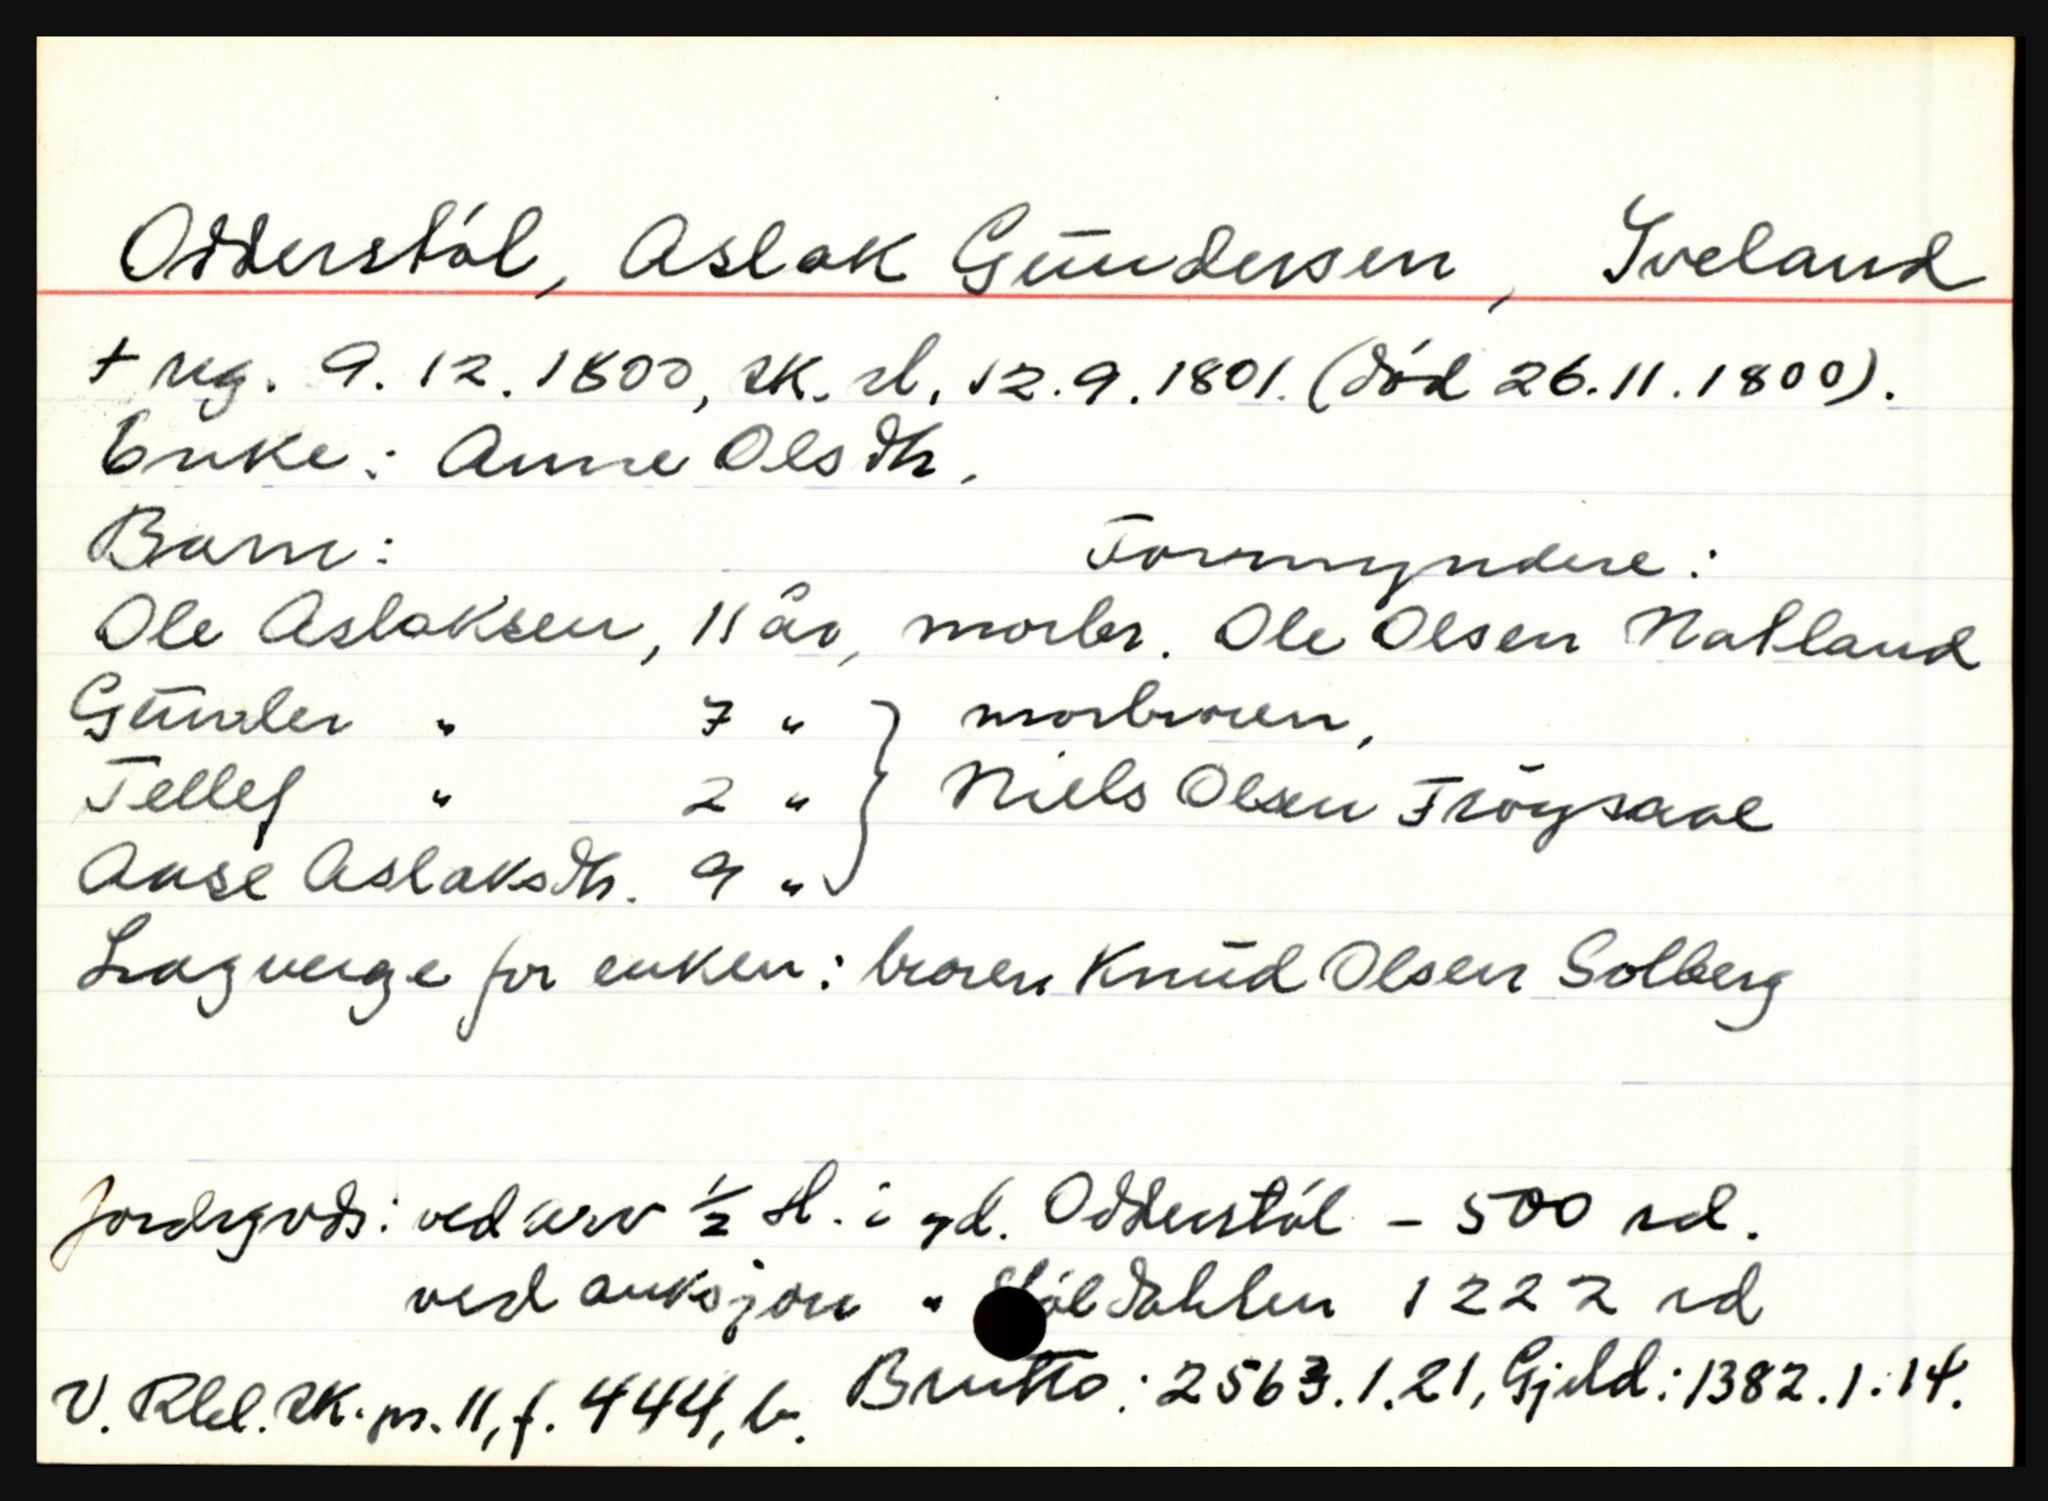 Odderstöl, Aslak Gündersen, Iveland
+ reg. 9.12.1800, sk. sl. 12.9.1801. (död 26.11.1800).
Enke: Anne Olsdtr.
Barn: Formyndere:
Ole Aslaksen, 11 år, morbr. Ole Olsen Natland
Günder " 7 " } morbroren,
Tellef " 2 " } Niels Olsen Fröysaae
Aase Aslaksdtr. 9 " }
Lagverge for enken: broren Knüd Olsen Solberg
Jordegods: ved arv ½ hl. i gd. Odderstöl - 500 rd.
ved auksjon " Stöldahlen 1222 rd
V. Rbl. sk. pr. 11, f. 444, b. Brutto: 2563.1.21, Gjeld: 1382.1.14.